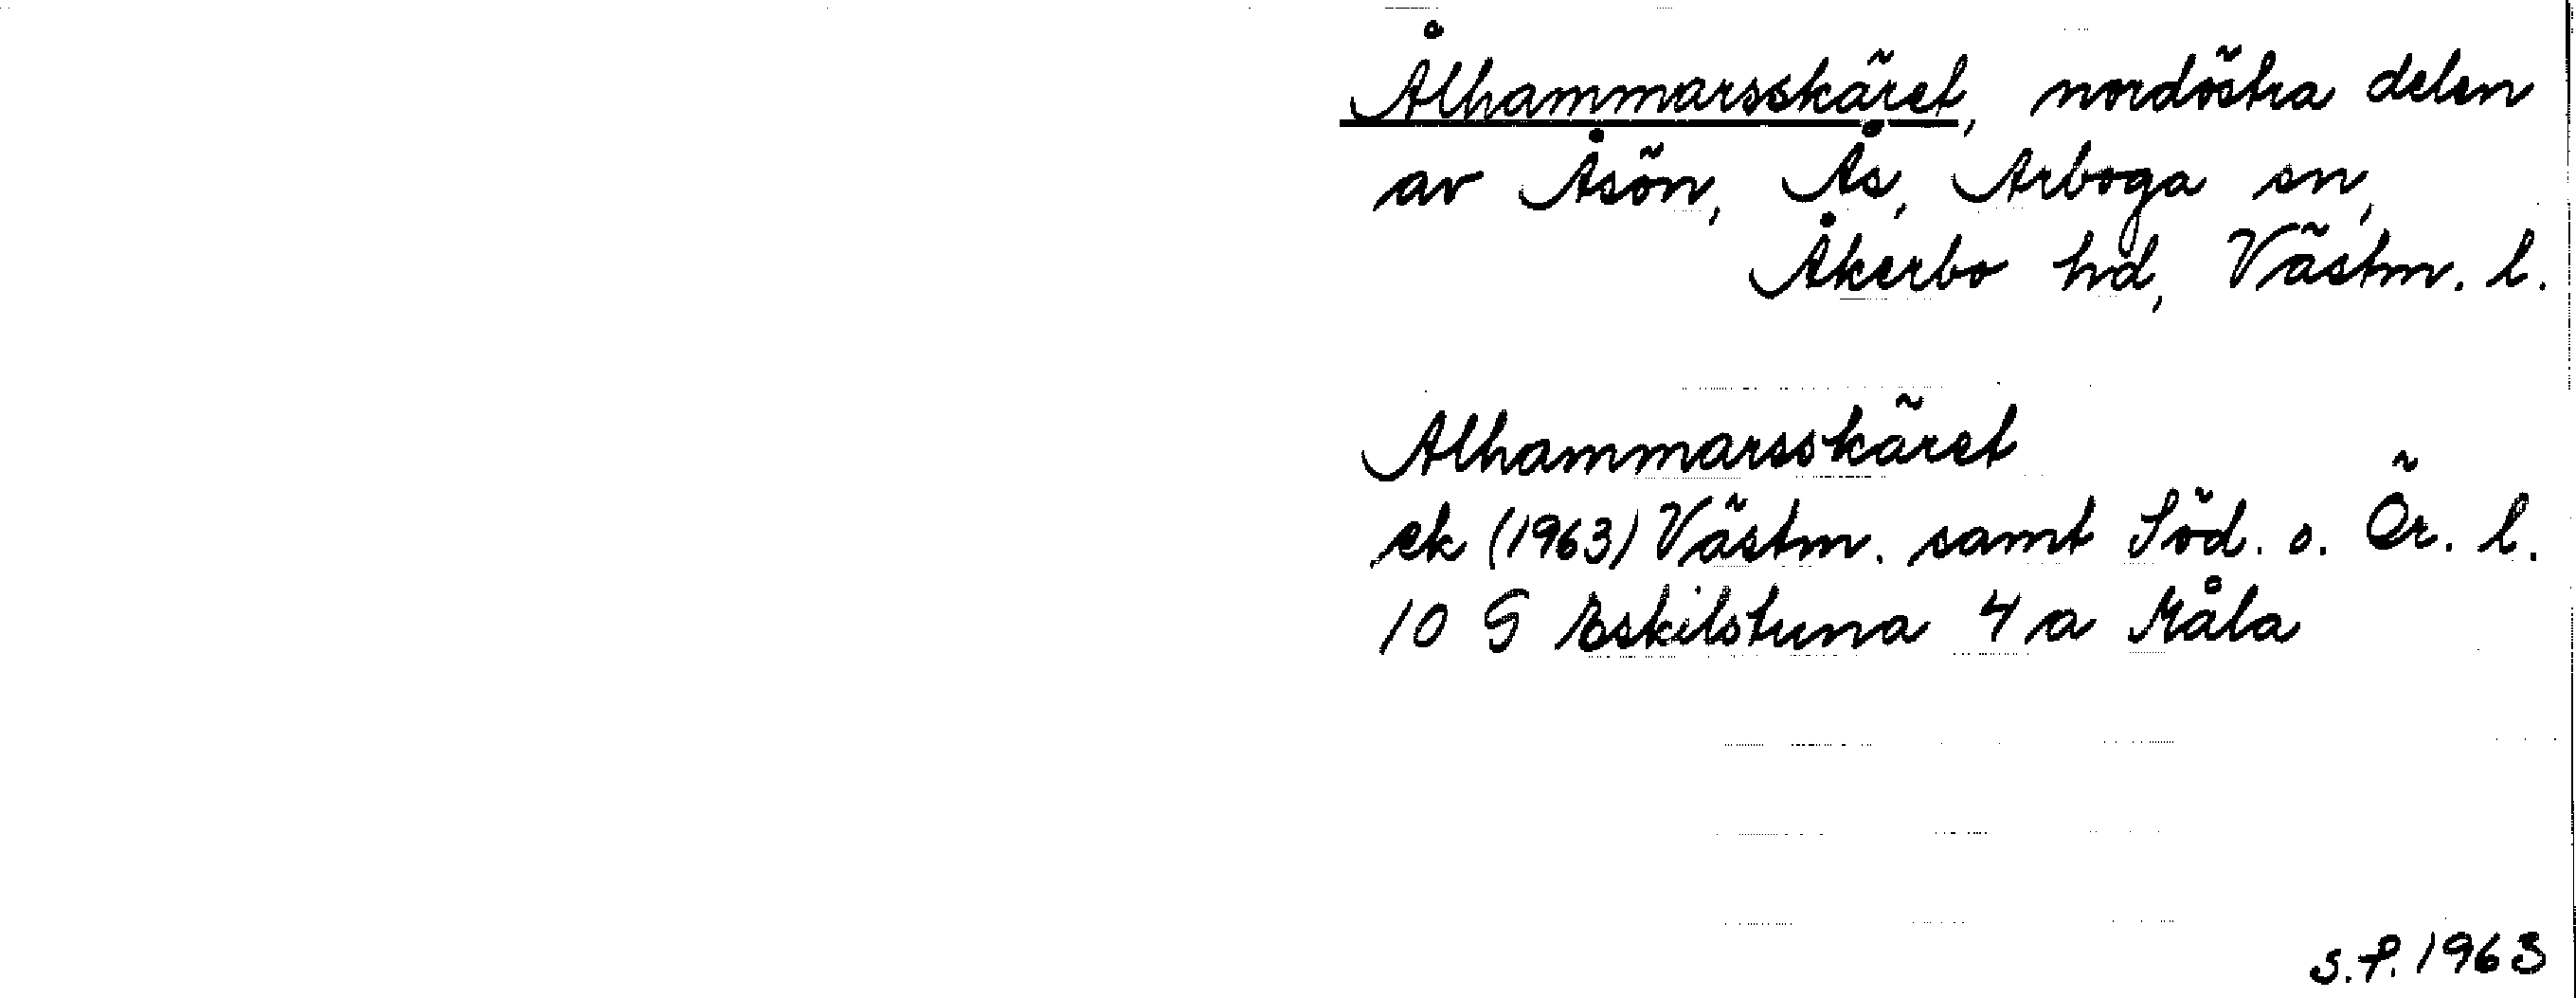 Ålhammarsskäret, nordöstra delen
av Åsön, Ås, Arboga sn,
Åkerbo hd, Västm. l.
Alhammarsskäret
ek (1963) Västm. samt Söd. o. Ör. l.
10 G Eskilstuna 4 a Måla
S.P. 1963